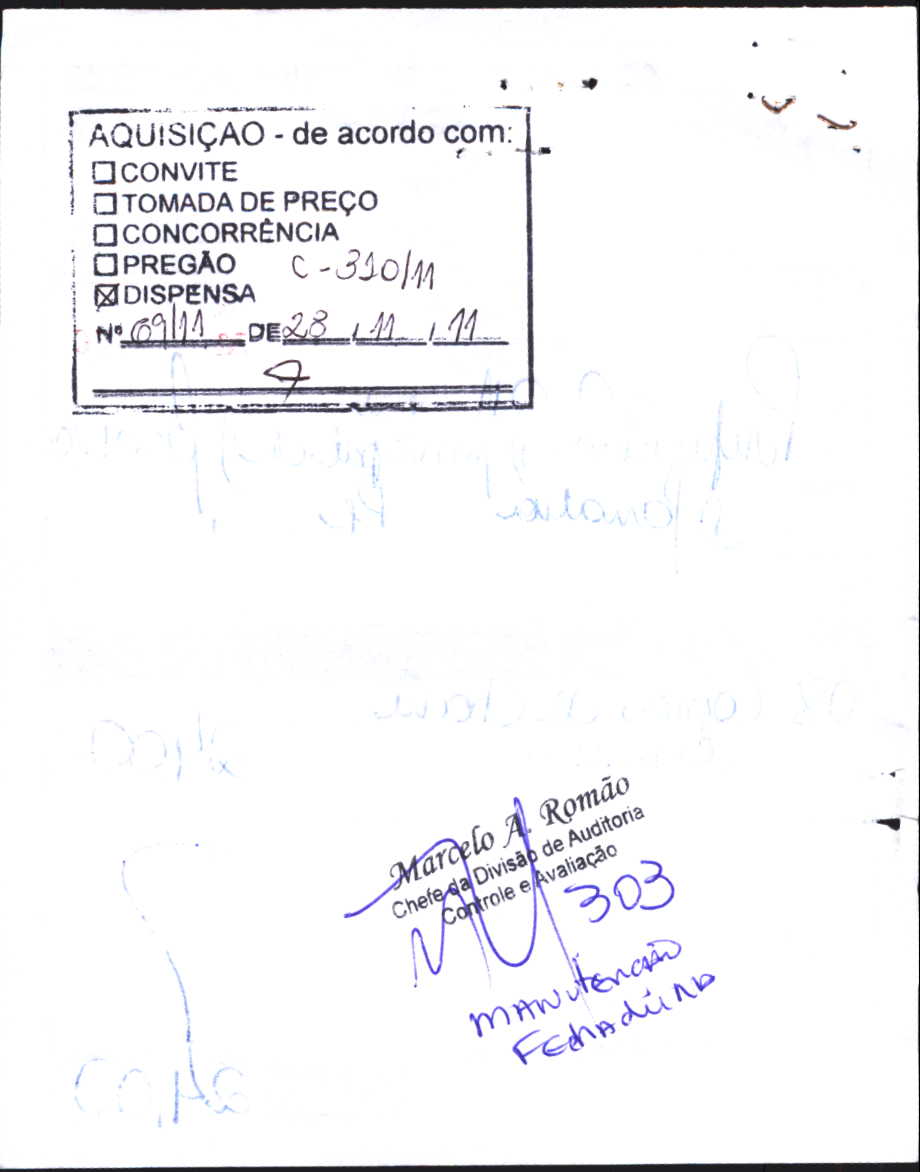 AQUISIÇAO - de acordo com:
☐ CONVITE
☐ TOMADA DE PREÇO
☐ CONCORRÊNCIA
☐ PREGÃO C-310/11
☒ DISPENSA
Nº 69/11 DE 28 / 11 / 11
Marcelo A. Romão
Chefe da Divisão de Auditoria
Controle e Avaliação
303
MANUTENCÃO
FECHADURA
24,00
24,00